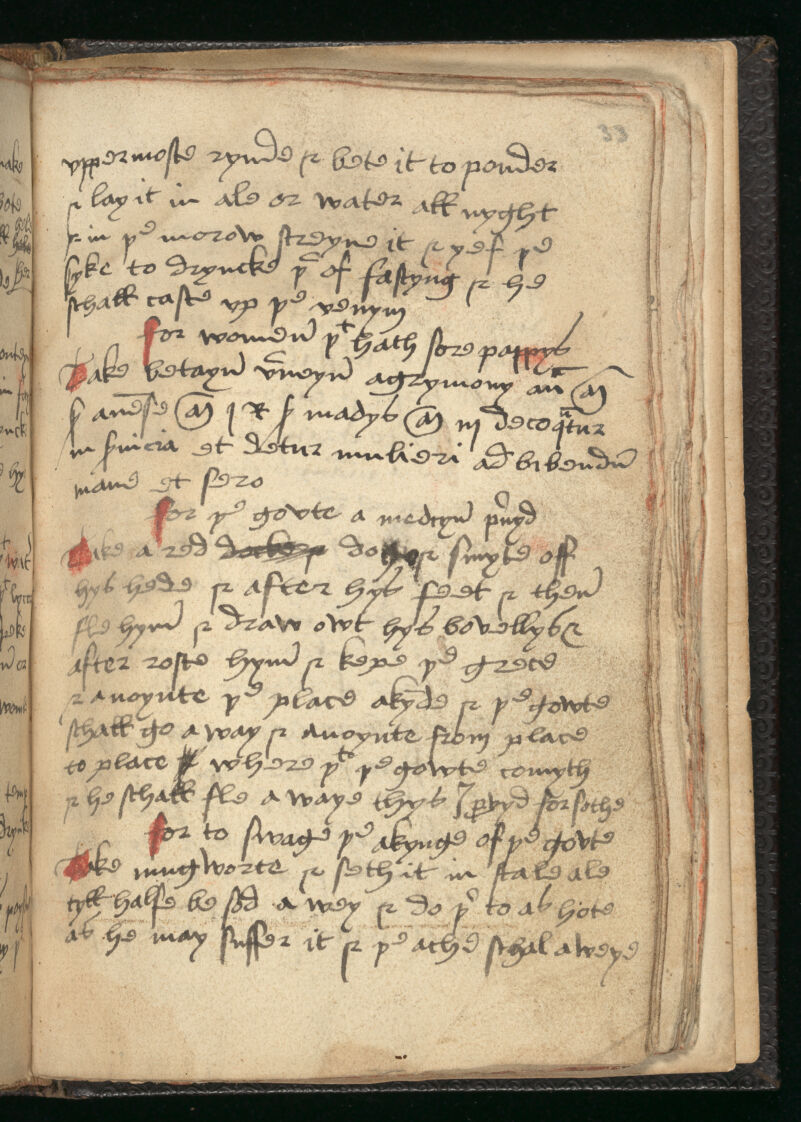 33
vppermoste rynde & bete it to pouder
& lay it in ale or water all nyght
& in þe morow streyne it & yef þe
syke to dryncke þerof fastyng & he
schall caste vp þe venym
for women̄ þt hath sore pappys
Take betayn̄ v̄veyn̄ agrymony an̄ aͫ
aͫ j R madys aͫ iij decoqatur
in et detur mulieri ad bibendū
mane et sero
for þe govte a medcyn̄ p̉vyd
Take a red docke & & smyte off
hys hede & after hys feet & then̄
fle hym̄ & draw owt hys bovellys &
after roste hym̄ & kepe þe grece
& anoynte þe place akyde & þe gowte
schall go a way & anoynte from place
to place where þt þe gowte comyth
& he schall fle a waye thys ꝑvyd for sothe
for to swage þe akynge of þe govte
Take mugworte & seth it in stale ale
tyll halfe be sod a wey & do þer to as hote
as he may suffer it & þe ache schal a weye